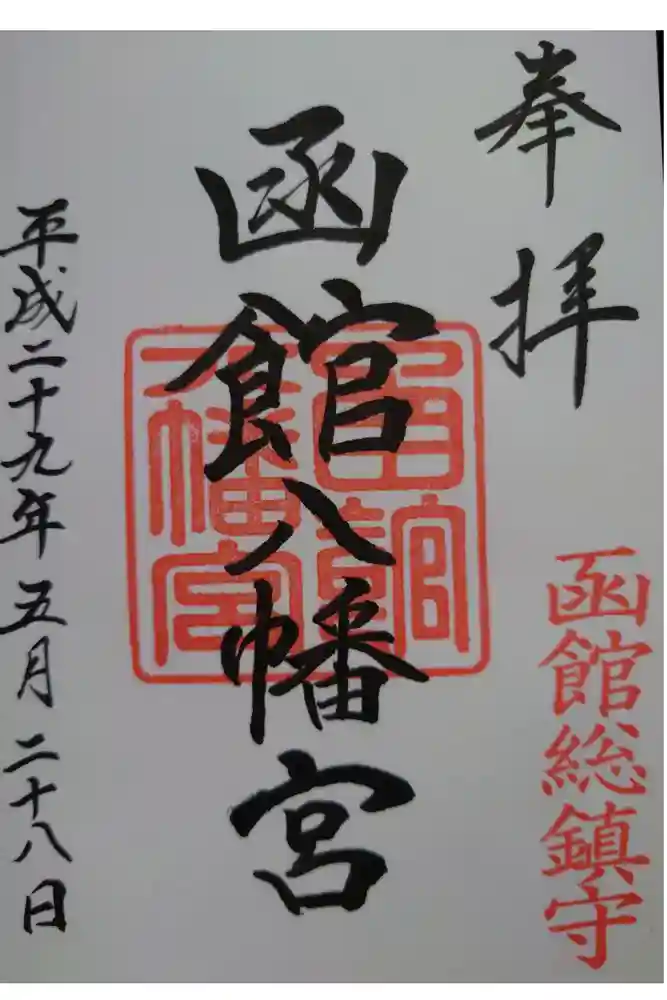 奉拝
函館総鎮守
函館八幡宮
函館
八幡宮
平成二十九年五月二十八日